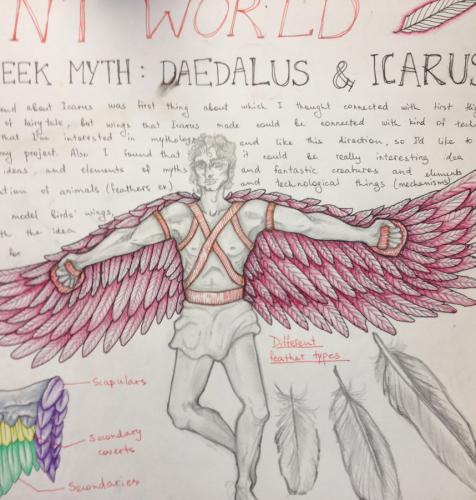 NT WORLD
EEK MYTH: DAEDALUS & ICARUS
about Icarus was first thing about which I thought connected with first
of fairytale, but wings that Icarus made could be connected with kind of
that I'm interested in mythology and like this direction, so I'd like to
my project. Also I found that it could be really interesting idea
ideas, and elements of myths and fantastic creatures and elements
of animals (feathers ex) and technological things (mechanisms)
model Birds' wings,
the idea
for
Different
feather types
Scapulars
Secondary
coverts
Secondaries